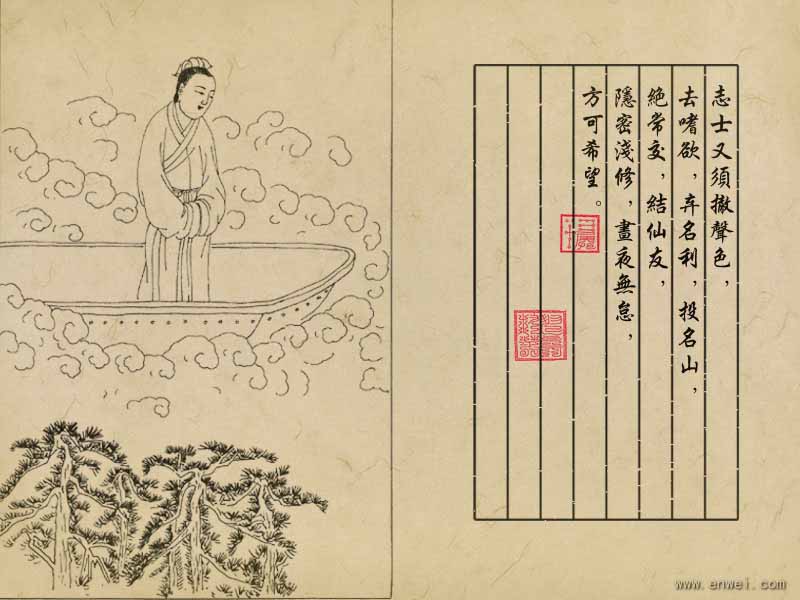 志士又須撤聲色，
去嗜欲，弃名利，投名山，
絶常交，結仙友，
隱密淺修，晝夜無怠，
方可希望。
www.enwei.com